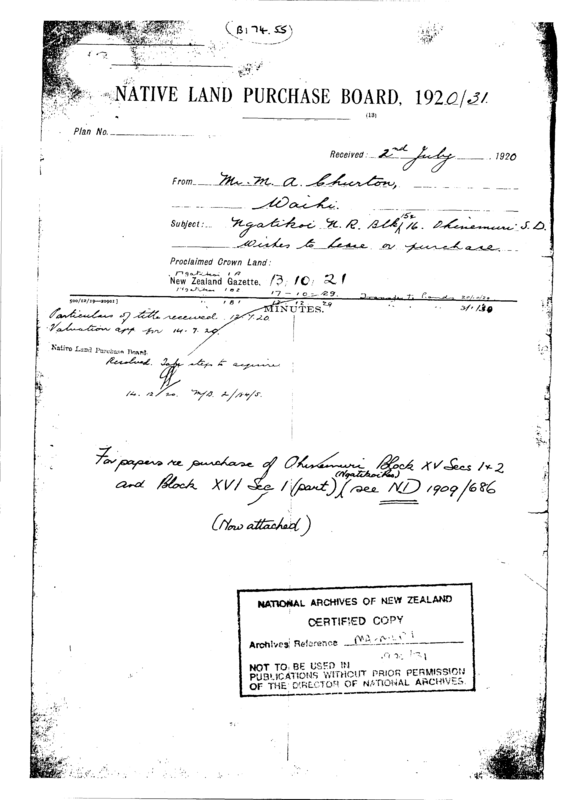 (B174.55)
NATIVE LAND PURCHASE BOARD, 1920/31.
(13)
Plan No.
Received: 2nd July 1920
From Mr. M. A. Churton,
Waihi.
Subject: Ngatikoi N. R. Blks 15 & 16. Ohinemuri S.D.
Wishes to lease or purchase.
Proclaimed Crown Land:
Ngatikoi 1A
New Zealand Gazette. 13.10.21
Ngatikoi 1B2 17-10-29.
" 1B1
MINUTES.
Particulars of title received 12.7.20
Valuation app for 14.7.20
Native Land Purchase Board.
Resolved. Take steps to acquire
14.12/20. M/B. 2/124/5.
For papers re purchase of Ohinemuri Block XV Secs 1 & 2
(Ngatikoi Res)
and Block XVI Sec 1 (part) (see N.D 1909/686
(Now attached)
NATIONAL ARCHIVES OF NEW ZEALAND
CERTIFIED COPY
Archives Reference MA-MLP 1
NOT TO BE USED IN
PUBLICATIONS WITHOUT PRIOR PERMISSION
OF THE DIRECTOR OF NATIONAL ARCHIVES.